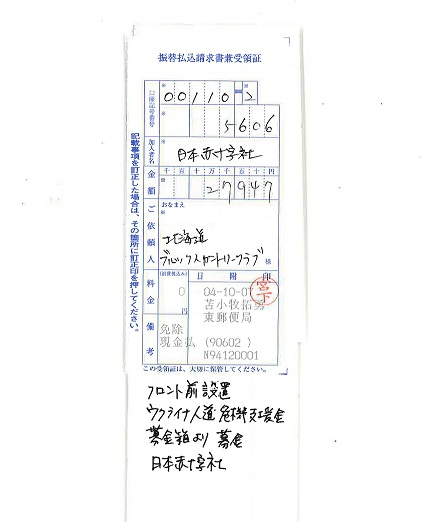 振替払込請求書兼受領証
口座記号番号
00110-2
5606
加入者名
日本赤十字社
金額
千 百 十 万 千 百 十 円
27947
ご依頼人
おなまえ
北海道
ブルックスカントリークラブ 様
料金
(消費税込み)
0 円
日 附 印
04-10-07
苫小牧拓勇
東郵便局
宮下
備考
免除
現金払 (90602 )
N94120001
この受領証は、大切に保管してください。
記載事項を訂正した場合は、その箇所に訂正印を押してください。
フロント前設置
ウクライナ人道危機支援金
募金箱より募金
日本赤十字社